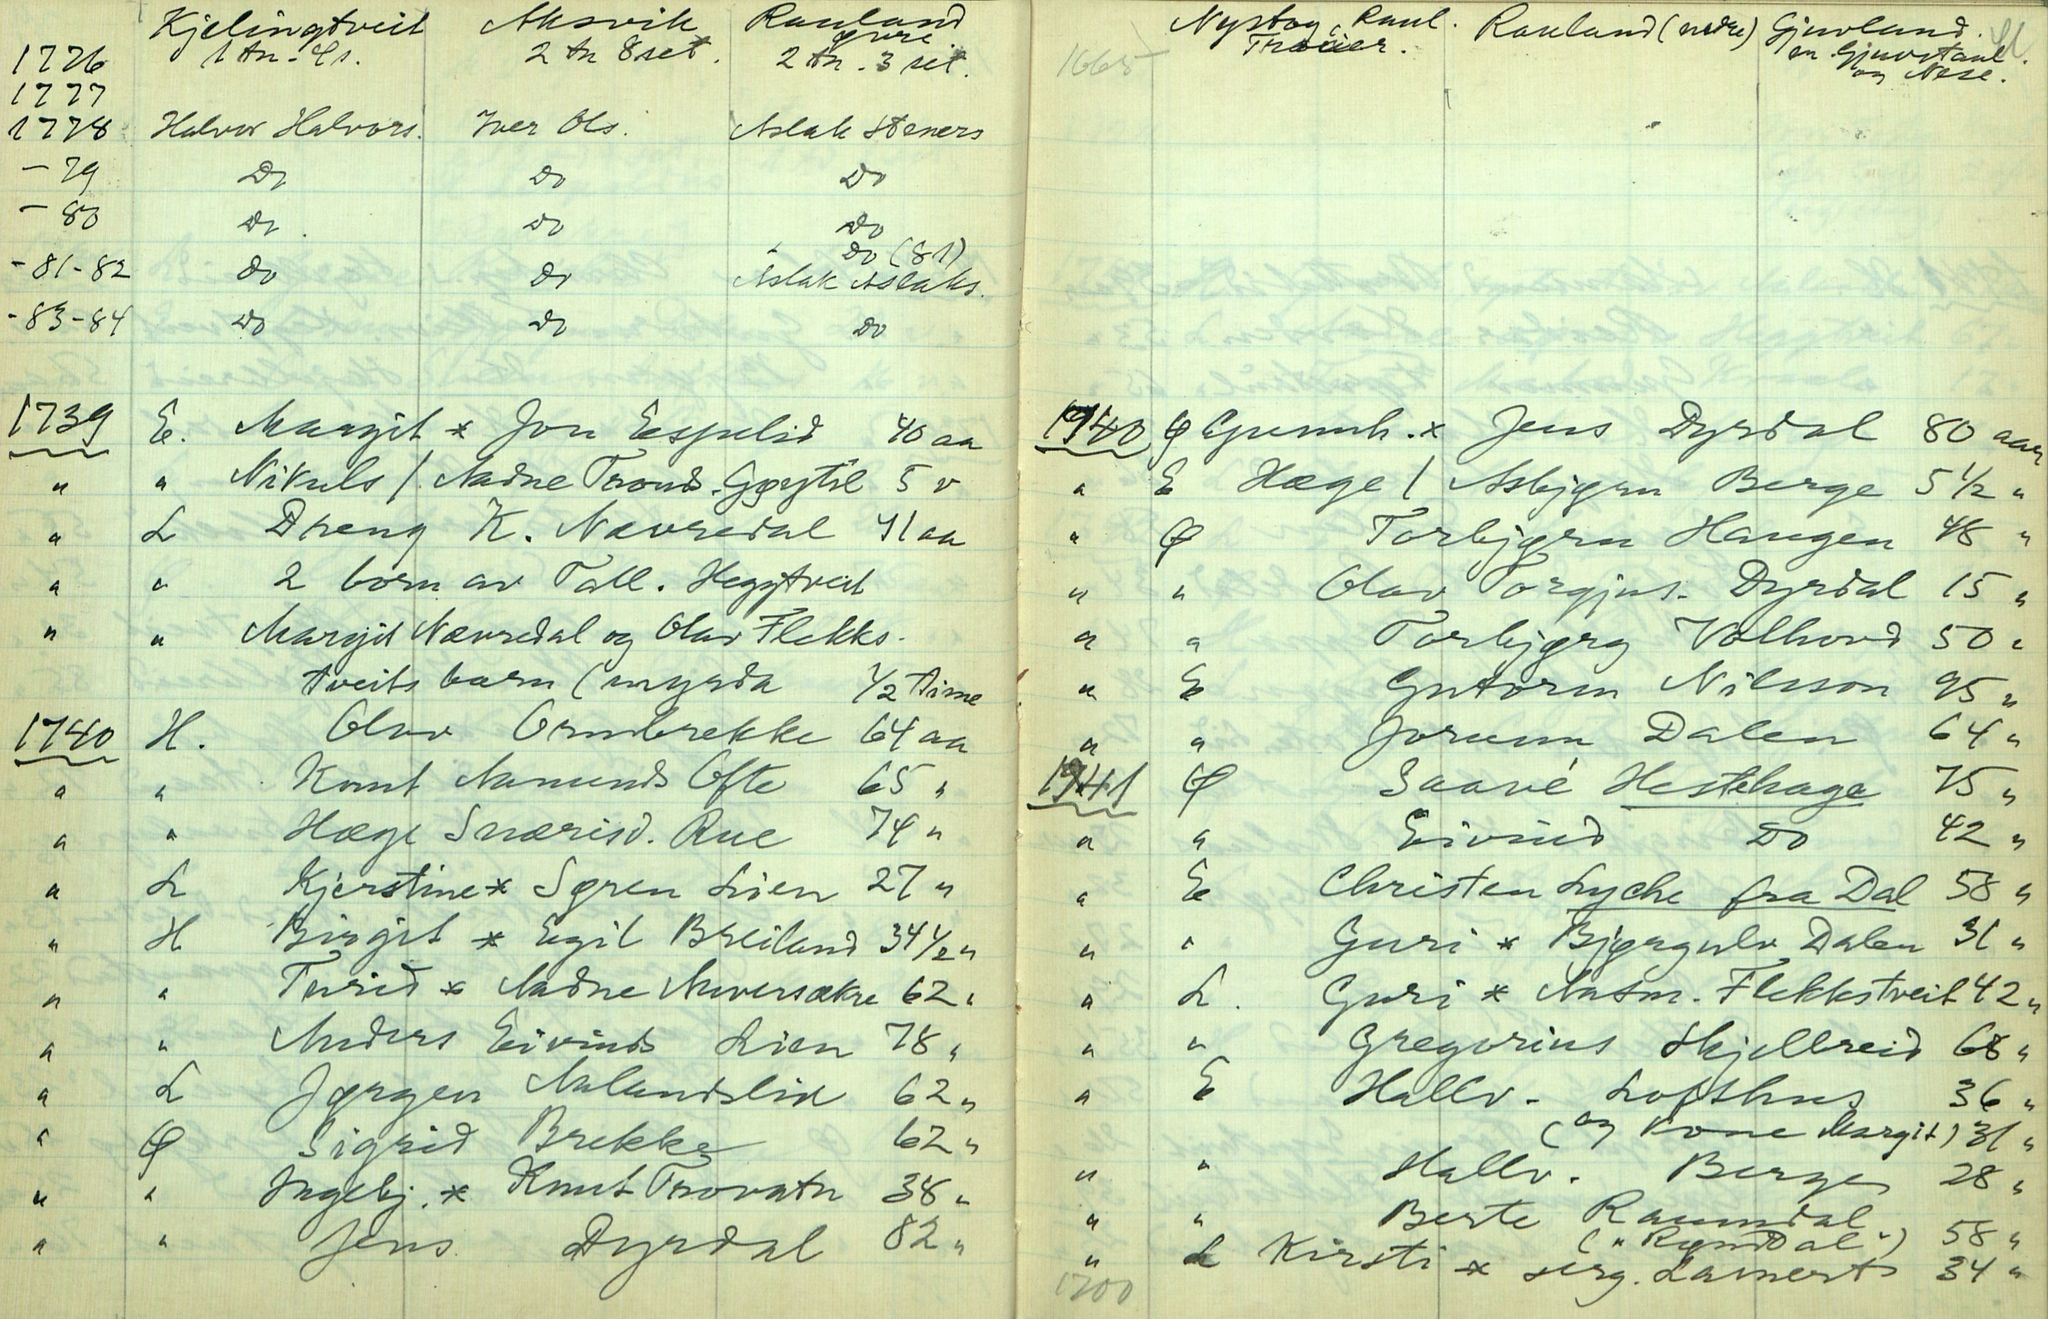 Kjelingtveit Aksvik Rauland
øvre
1776 1 tn. 4s. 2 tn 8 set. 2 tn. 3 set.
1777
1778 Halvor Halvors. Iver Ols. Aslak Steners
- 79 Do Do Do
- 80 Do Do Do
Do (81)
- 81-82 Do Do Aslak Aslaks.
- 83-84 Do Do Do
1739 E. Margit * Jon Espelid 40 aa
" " Nikuls / Aadne Trond. Gøytil 5 v
" L Dreng K. Nævredal 41 aa
" " 2 born av Tall. Heggtveit
" " Margit Nævredal og Olav Flekks-
tveits barn (myrda 1/2 time
1740 H. Olav Ormbrekke 64 aa
" " Knut Aamunds Ofte 65 "
" " Hæge Snærisd. Rue 74 "
" L Kjerstine * Søren Lien 27 "
" H Birgit * Egil Breiland 34 1/2 "
" " Turid * Aadne Auversækre 62 "
" " Anders Eivinds Lien 78 "
" L Jørgen Aalandslid 62 "
" Ø Sigrid Brekke 62 "
" " Ingebj. * Knut Trovatn 38 "
" " Jens Dyrdal 82 "
Nystog, Raul. Rauland (nedre) Gjuvland.
1665 en Gjuvstaul
og Nese.
1740 Ø Gunnh. * Jens Dyrdal 80 aar
" E Hæge / Asbjørn Berge 5 1/2 "
" Ø Torbjørn Haugen 48 "
" " Olav Torgjus. Dyrdal 15 "
" " Torbjørg Volhovd 50 "
" E Gutorm Nilsson 95 "
" " Jorunn Dalen 64 "
1741 Ø Saavé Hestehage 75 "
" " Eivind Do 42 "
" E Christen Lyche fra Dal 58 "
" " Guri * Bjørgulv Dalen 31 "
" L. Guri * Aasm. Flekkstveit 42 "
" " Gregorius Skjelbreid 68 "
" E Hallv. Lofthus 36 "
(og Kone Margit) 31 "
" " Hallv. Berge 28 "
" " Berte Raundal
(" Rynddal ") 58 "
" L Kirsti * serg. Lamerts 34 "
1700